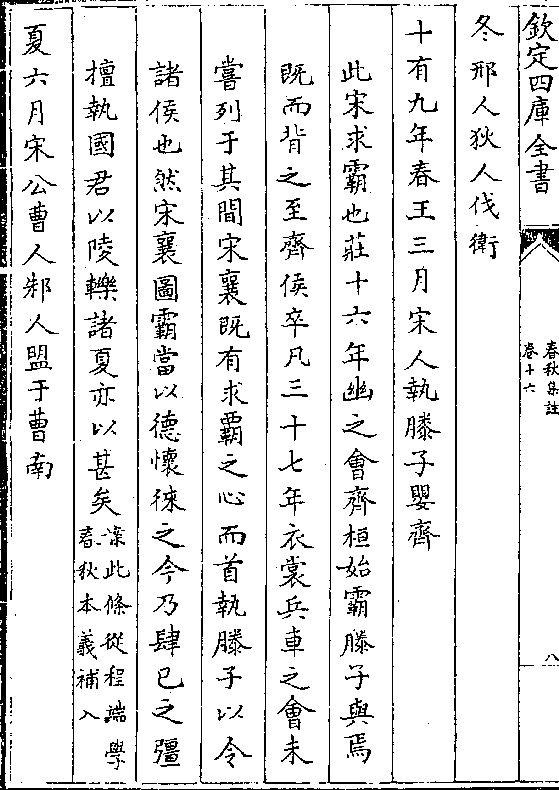 欽定四庫全書
春秋集註
卷十六
八
冬邢人狄人伐衛
十有九年春王三月宋人執滕子嬰齊
此宋求霸也莊十六年幽之會齊桓始霸滕子與焉
既而背之至齊侯卒凡三十七年衣裳兵車之會未
嘗列于其間宋襄既有求霸之心而首執滕子以令
諸侯也然宋襄圖霸當以德懷徠之今乃肆已之彊
擅執國君以陵轢諸夏亦以甚矣
案此條從程端學
春秋本義補入
夏六月宋公曹人邾人盟于曹南